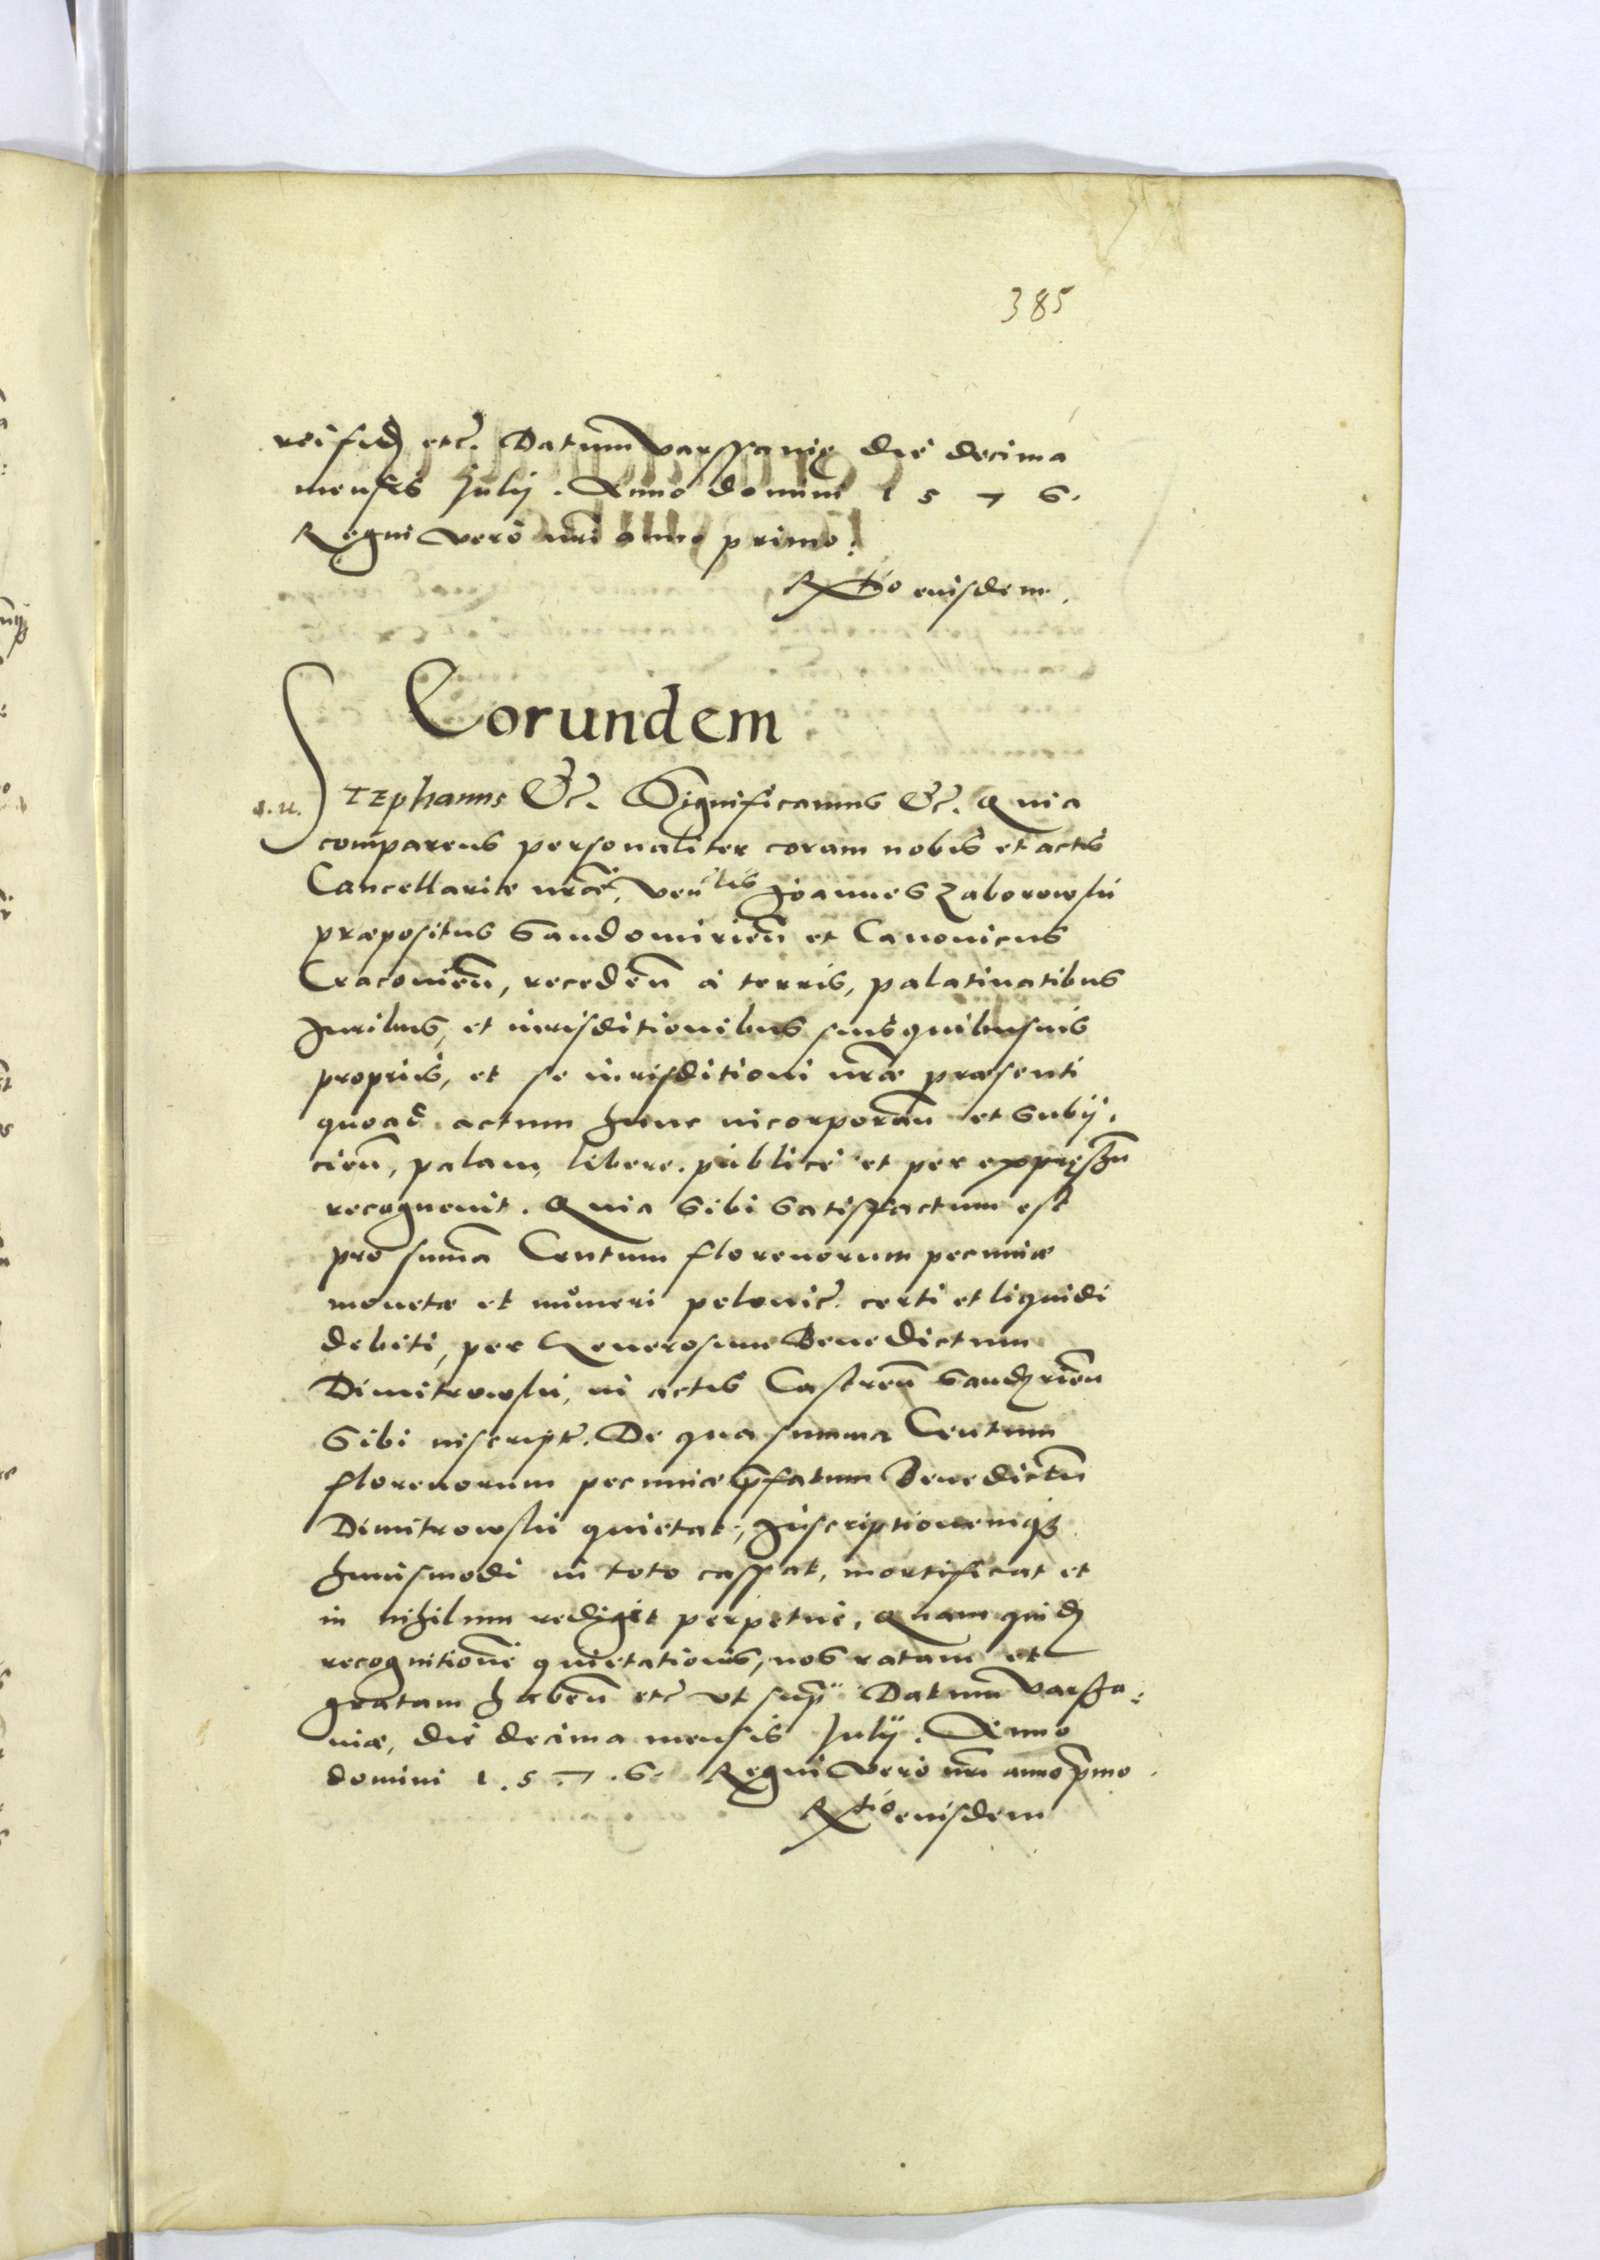 385
rei fid etc. Datum Varssavie die decima
mensis Julij. Anno domini 1 5 7 6.
Regni vero nri anno primo.
Rtio eiusdem.
Eorundem
Stephanus Etc. Significamus Etc. Quia
comparens personaliter coram nobis et actis
Cancellariæ nræ, venlis Joannes Zaborowski
præpositus Sandomirien et Canonicus
Cracovien, receden à terris, palatinatibus
Juribus, et iurisditionibus suis quibusuis
proprijs, et se iurisditioni nræ præsenti
quoad actum hunc incorporan et subij,
cien, palam, libere, publicè et per expressum
recognovit. Quia sibi satisfactum est
pro suma Centum florenorum pecuniæ
monetæ et numeri polonic. certi et liquidi
debiti, per Generosum Benedictum
Dimitrowski, in actis Castren Sandrien
sibi inscript. De qua summa Centum
florenorum pecuniæ pfatum Benedictu
Dimitrowski quietat, Inscriptionemqz
huiusmodi in toto cassat, mortificat et
in nihilum redigit perpetue, Quam quid
recognitione quietationis, nos ratam et
gratam haben etc ut sup. Datum Varssa,
uiæ, die decima mensis Julij. Anno
domini 1.5.7.6. Regni vero nri anno pmo.
Rtio eiusdem